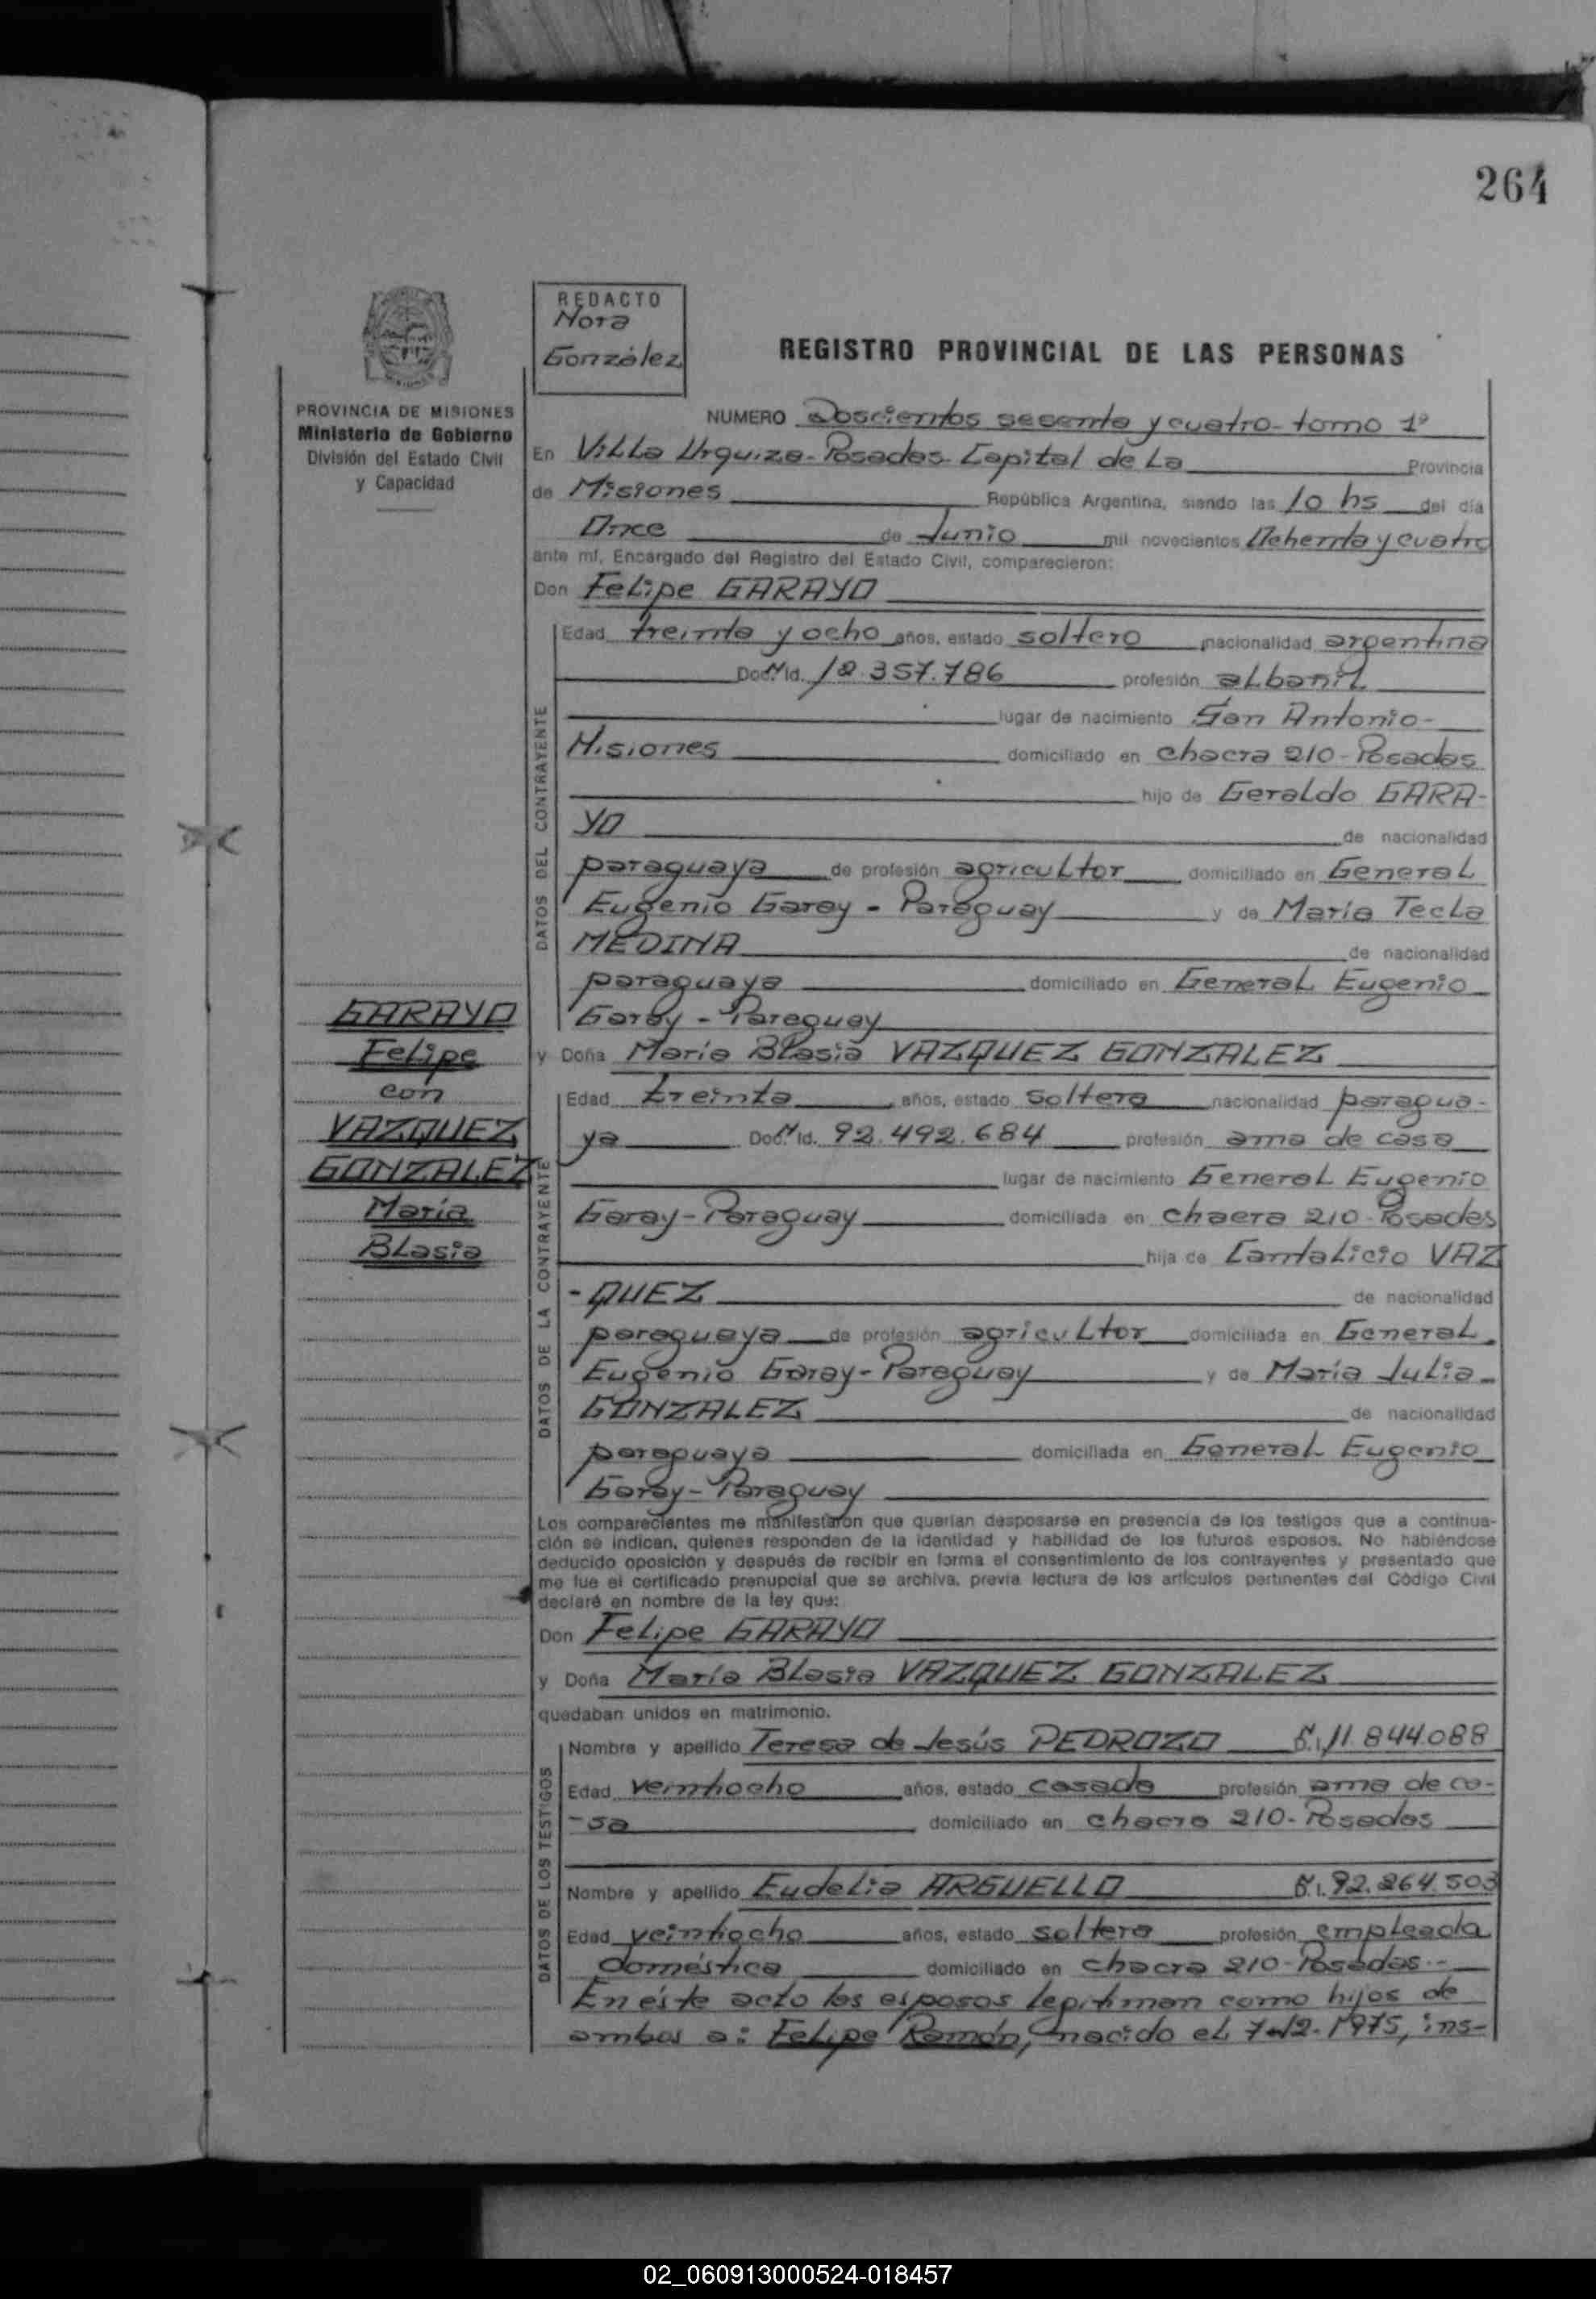 264
REDACTO
Nora
González
REGISTRO PROVINCIAL DE LAS PERSONAS
PROVINCIA DE MISIONES
Ministerio de Gobierno
División del Estado Civil
y Capacidad
NUMERO Doscientos sesenta y cuatro- tomo 1º
En Villa Urquiza- Posadas- Capital de La Provincia
de Misiones República Argentina, siendo las 10 hs del día
Once de Junio mil novecientos Ochenta y cuatro
ante mí, Encargado del Registro del Estado Civil, comparecieron:
Don Felipe GARAYO
DATOS DEL CONTRAYENTE
Edad treinta y ocho años, estado soltero nacionalidad argentina
Doc. Nº Id. 12.357.786 profesión albañil
lugar de nacimiento San Antonio-
Misiones domiciliado en chacra 210-Posadas
hijo de Geraldo GARA-
YO de nacionalidad
paraguaya de profesión agricultor domiciliado en General
Eugenio Garay - Paraguay y de María Tecla
MEDINA de nacionalidad
paraguaya domiciliado en General Eugenio
Garay - Paraguay
y Doña María Blasia VAZQUEZ GONZALEZ
GARAYO
Felipe
con
VAZQUEZ
GONZALEZ
María
Blasia
DATOS DE LA CONTRAYENTE
Edad treinta años, estado soltera nacionalidad paragua-
ya Doc. Nº Id. 92.492.684 profesión ama de casa
lugar de nacimiento General Eugenio
Garay-Paraguay domiciliada en chacra 210-Posadas
hija de Cantalicio VAZ
-QUEZ de nacionalidad
paraguaya de profesión agricultor domiciliada en General
Eugenio Garay-Paraguay y de María Julia
GONZALEZ de nacionalidad
paraguaya domiciliada en General Eugenio
Garay-Paraguay
Los comparecientes me manifestaron que querían desposarse en presencia de los testigos que a continua-
ción se indican, quienes responden de la identidad y habilidad de los futuros esposos. No habiéndose
deducido oposición y después de recibir en forma el consentimiento de los contrayentes y presentado que
me fue el certificado prenupcial que se archiva, previa lectura de los artículos pertinentes del Código Civil
declaré en nombre de la ley que:
Don Felipe GARAYO
y Doña María Blasia VAZQUEZ GONZALEZ
quedaban unidos en matrimonio.
DATOS DE LOS TESTIGOS
Nombre y apellido Teresa de Jesús PEDROZO 11.844.088
Edad veintiocho años, estado casada profesión ama de ca-
-sa domiciliado en chacra 210-Posadas
Nombre y apellido Eudelia ARGUELLO 92.264.503
Edad veintiocho años, estado soltera profesión empleada
doméstica domiciliado en chacra 210-Posadas--
En éste acto los esposos legitiman como hijos de
ambos a: Felipe Ramón, nacido el 7-12-1975, ins-
02_060913000524-018457